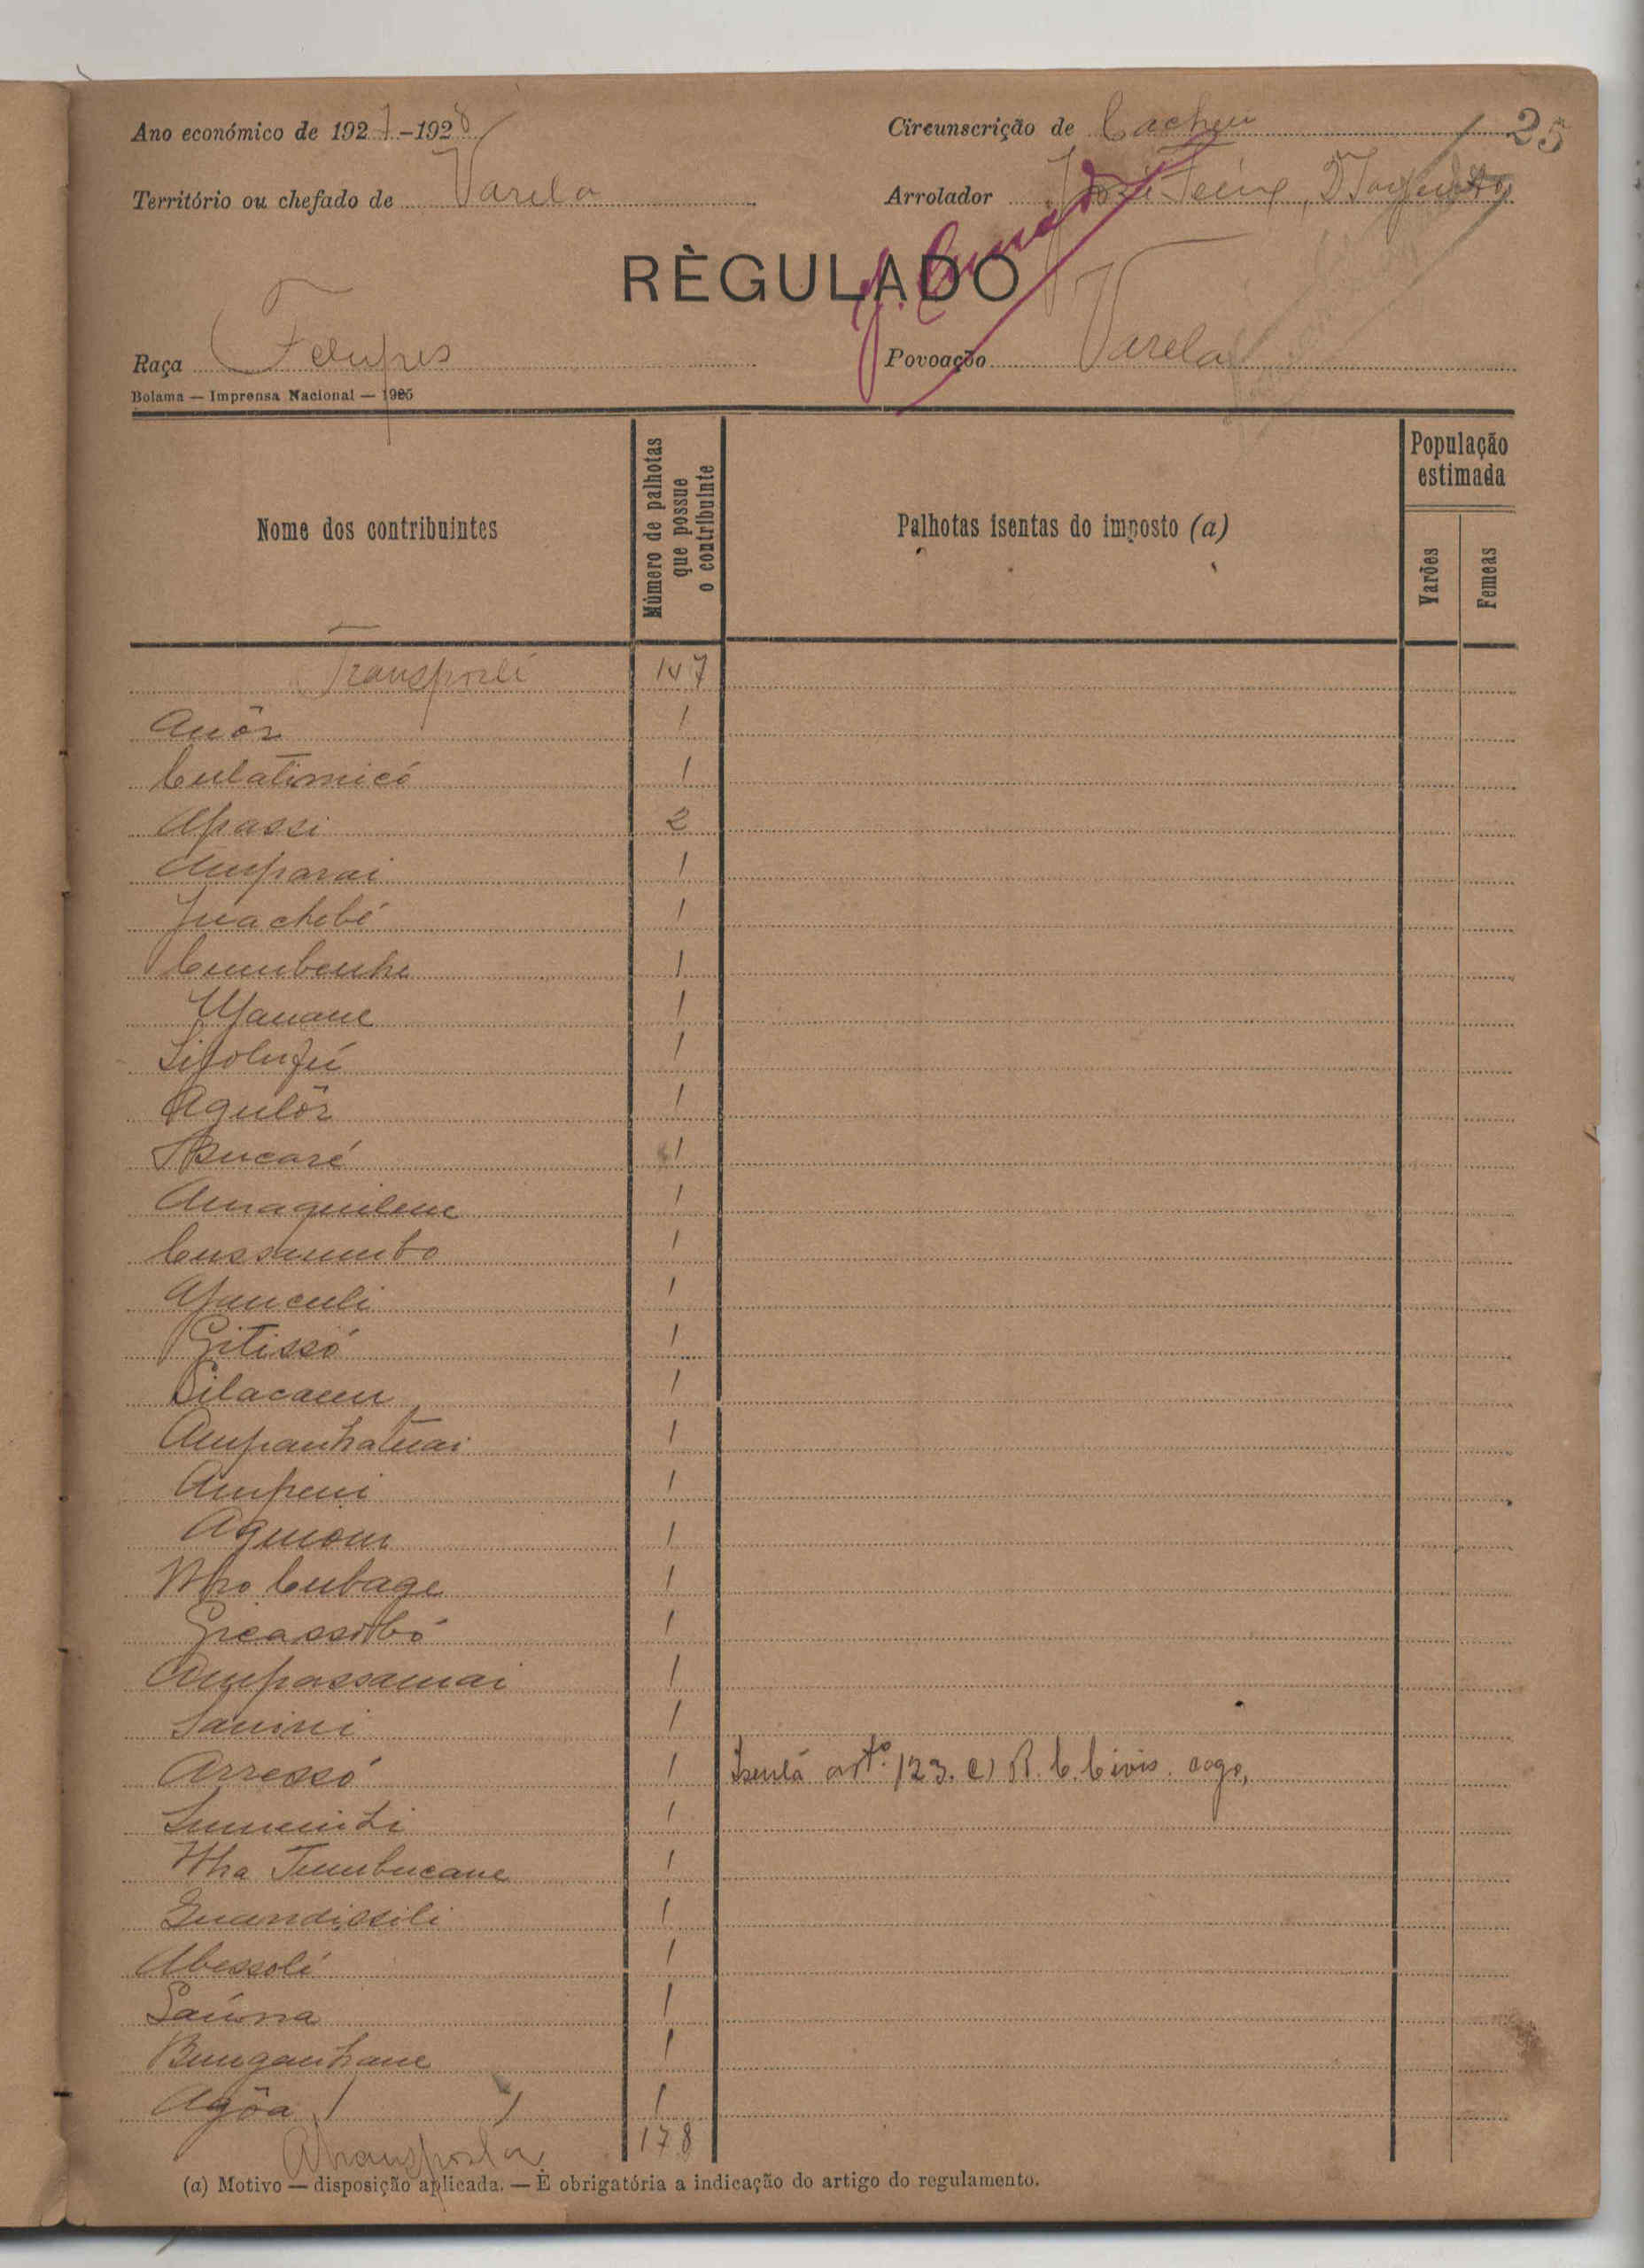 Ano económico de 1927-1928
Circunscrição de Cacheu
25
Território ou chefado de Varela
Arrolador José
RÈGULADO
Raça Felupes
Povoação Varela
Bolama — Imprensa Nacional — 1925
Nome dos contribuintes
Número de palhotas que possue o contribuinte
Palhotas isentas do imposto (a)
População estimada
Varões
Femeas
Transporte 147
Auôr 1
Culatimicó 1
Apassi 2
Amparai 1
Juachebé 1
Cumbenhe 1
1
1
Agulôr 1
Bucaré 1
Amaquilene 1
Cussaumbo 1
Afanculi 1
Gitissó 1
Silacaun 1
Ampanhatuai 1
Ampeni 1
Aguiom 1
Nho Cubage 1
1
Ampassamai 1
Sanini 1
Arressó 1 Isenta artº. 123. C. Civis.
1
Nha Tumbucane 1
Quandissili 1
Abessolé 1
1
Bunganhane 1
Agôa 1
A transportar 178
(a) Motivo — disposição aplicada. — È obrigatória a indicação do artigo do regulamento.